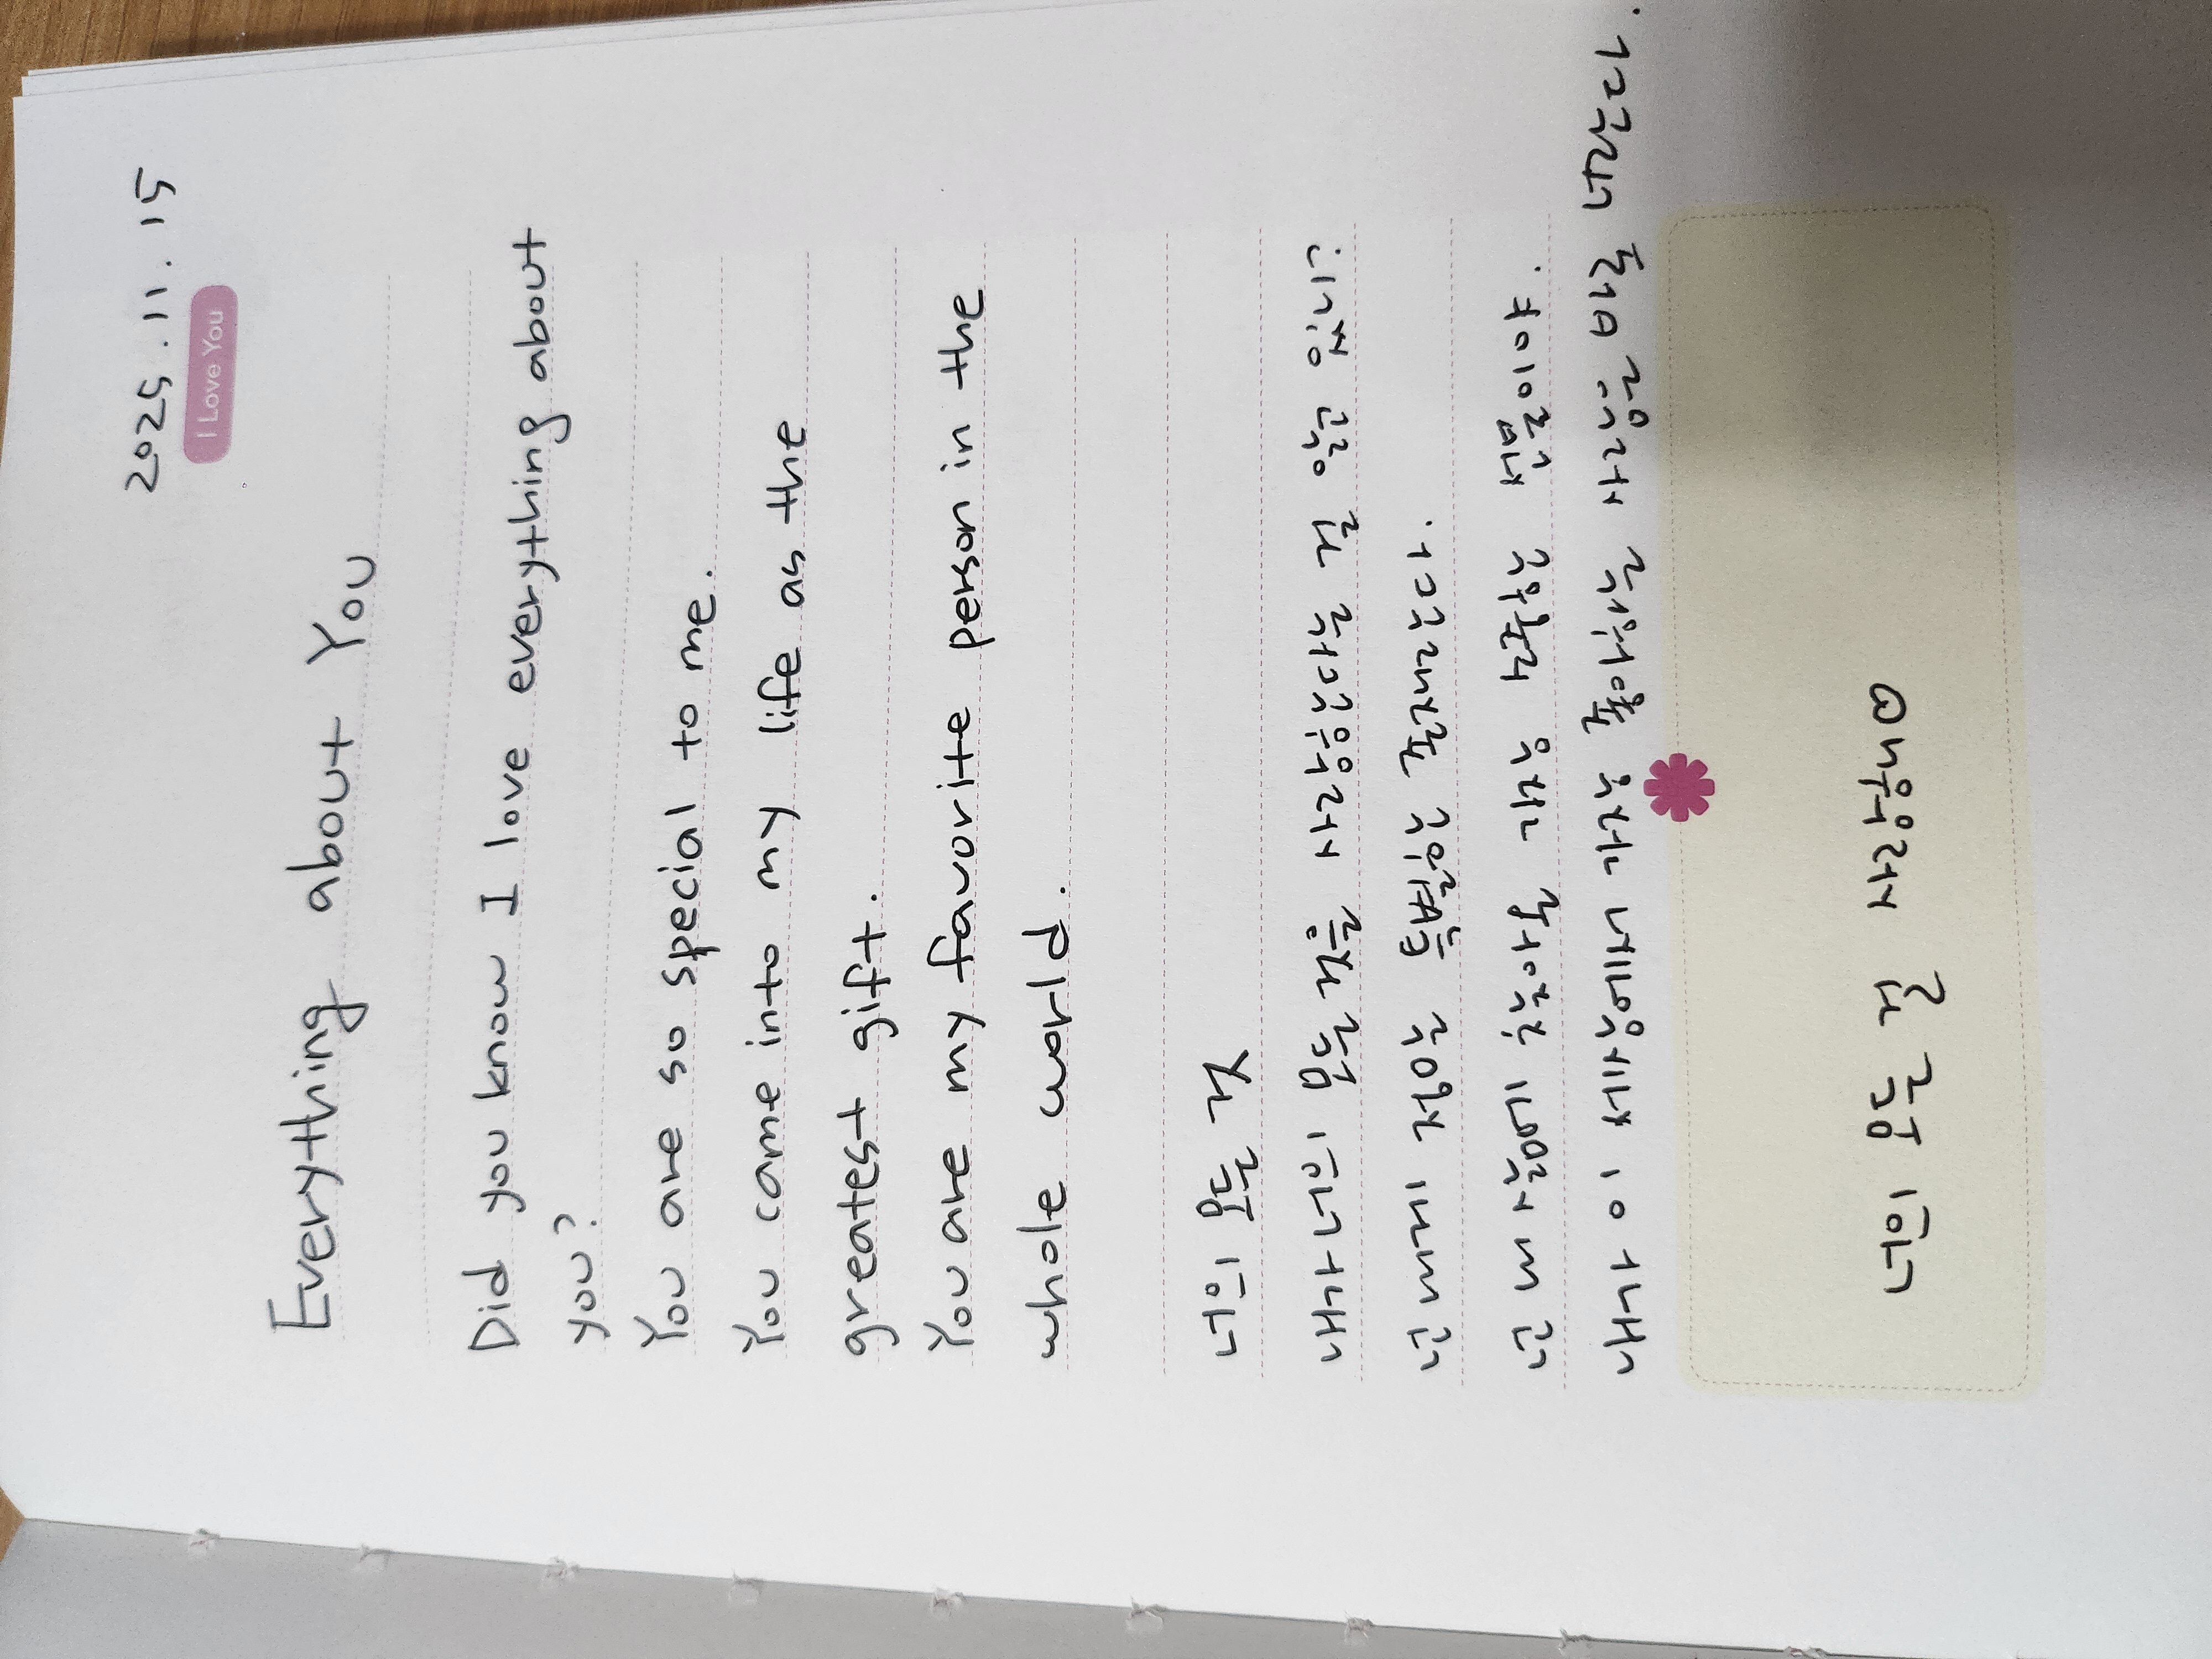 2025.11.15
I Love You
Everything about You
Did you know I love everything about
you?
You are so special to me.
You came into my life as the
greatest gift.
You are my favorite person in the
whole world.
너의 모든 것
내가 너의 모든 부분 사랑한다는 걸 알고 있니?
너는 내게 정말 특별한 존재란다.
너는 내 삶에 가장 큰 선물로 찾아왔지.
내가 이 세상에서 제일 좋아하는 사람은 바로 너란다.
너의 모든 걸 사랑해